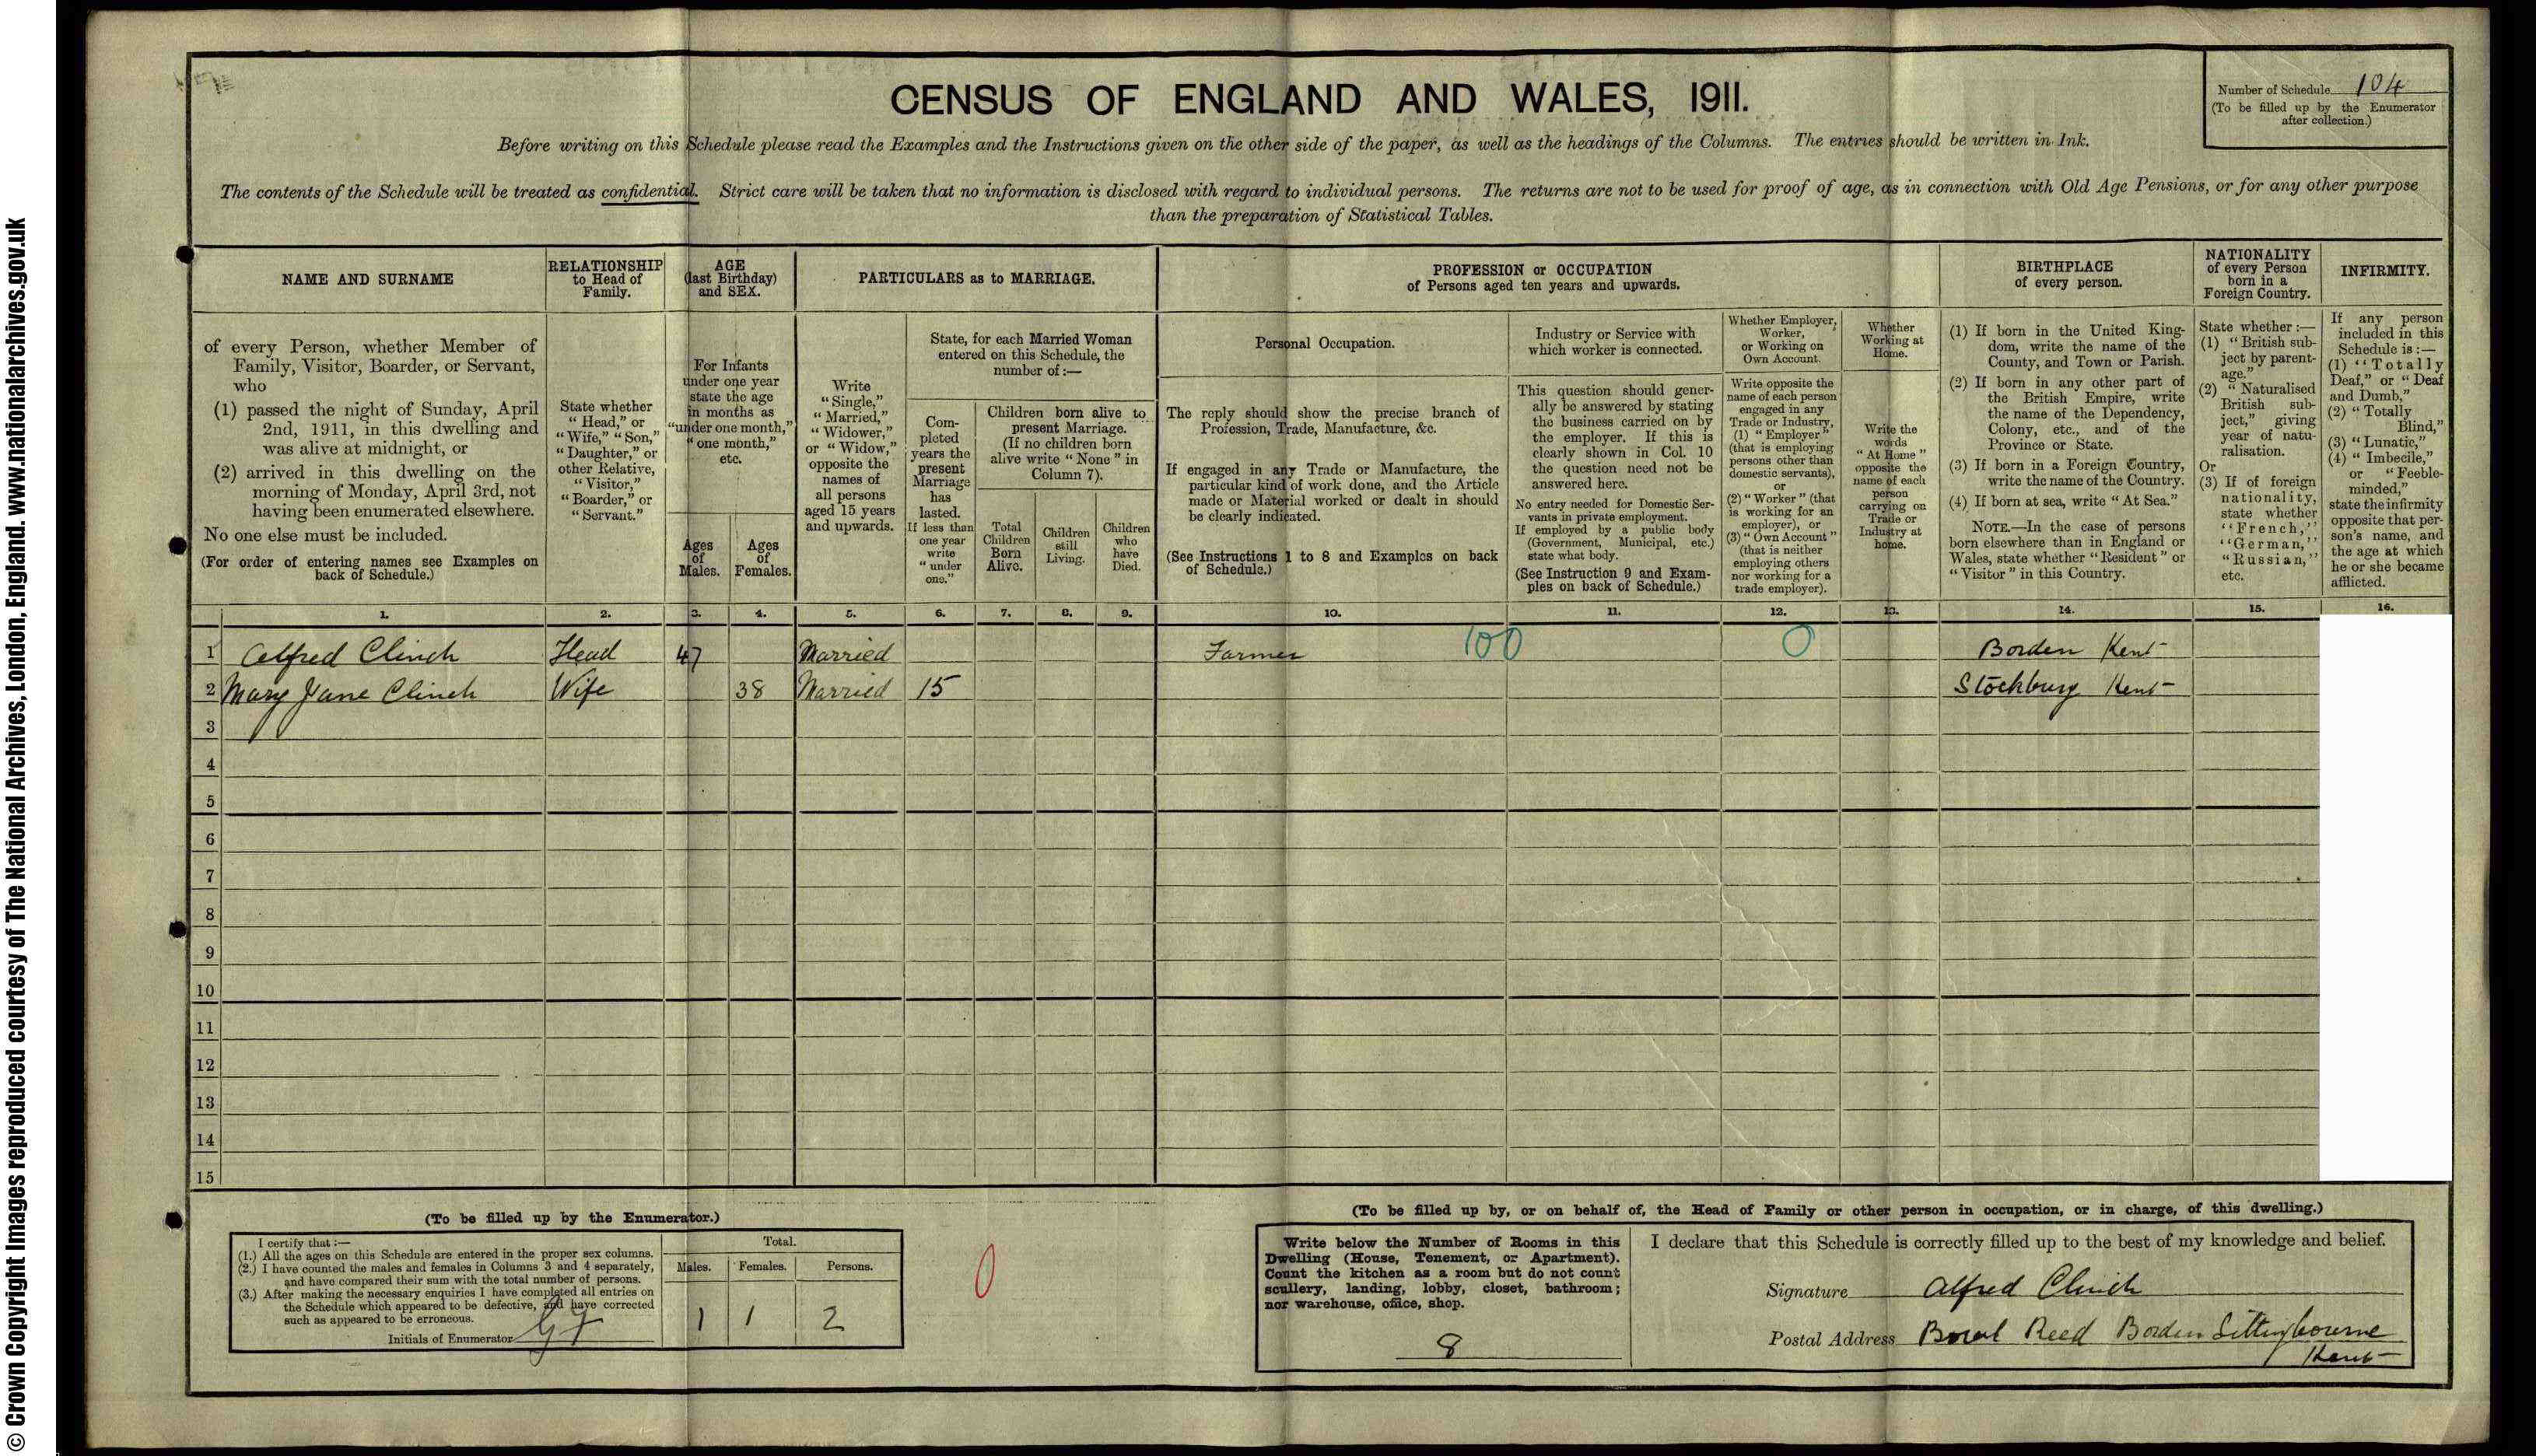 © Crown Copyright Images reproduced courtesy of The National Archives, London, England. www.nationalarchives.gov.uk
CENSUS OF ENGLAND AND WALES, 1911.
Number of Schedule 104
(To be filled up by the Enumerator
after collection.)
Before writing on this Schedule please read the Examples and the Instructions given on the other side of the paper, as well as the headings of the Columns. The entries should be written in Ink.
The contents of the Schedule will be treated as confidential. Strict care will be taken that no information is disclosed with regard to individual persons. The returns are not to be used for proof of age, as in connection with Old Age Pensions, or for any other purpose
than the preparation of Statistical Tables.
NAME AND SURNAME
of every Person, whether Member of
Family, Visitor, Boarder, or Servant,
who
(1) passed the night of Sunday, April
2nd, 1911, in this dwelling and
was alive at midnight, or
(2) arrived in this dwelling on the
morning of Monday, April 3rd, not
having been enumerated elsewhere.
No one else must be included.
(For order of entering names see Examples on
back of Schedule.)
RELATIONSHIP
to Head of
Family.
State whether
“Head,” or
“Wife,” “Son,”
“Daughter,” or
other Relative,
“Visitor,”
“Boarder,” or
“Servant.”
AGE
(last Birthday)
and SEX.
For Infants
under one year
state the age
in months as
“under one month,”
“one month,”
etc.
Ages
of
Males.
Ages
of
Females.
PARTICULARS as to MARRIAGE.
Write
“Single,”
“Married,”
“Widower,”
or “Widow,”
opposite the
names of
all persons
aged 15 years
and upwards.
State, for each Married Woman
entered on this Schedule, the
number of :—
Com-
pleted
years the
present
Marriage
has
lasted.
If less than
one year
write
“under
one.”
Children born alive to
present Marriage.
(If no children born
alive write “None” in
Column 7).
Total
Children
Born
Alive.
Children
still
Living.
Children
who
have
Died.
PROFESSION or OCCUPATION
of Persons aged ten years and upwards.
Personal Occupation.
The reply should show the precise branch of
Profession, Trade, Manufacture, &c.
If engaged in any Trade or Manufacture, the
particular kind of work done, and the Article
made or Material worked or dealt in should
be clearly indicated.
(See Instructions 1 to 8 and Examples on back
of Schedule.)
Industry or Service with
which worker is connected.
This question should gener-
ally be answered by stating
the business carried on by
the employer. If this is
clearly shown in Col. 10
the question need not be
answered here.
No entry needed for Domestic Ser-
vants in private employment.
If employed by a public body
(Government, Municipal, etc.)
state what body.
(See Instruction 9 and Exam-
ples on back of Schedule.)
Whether Employer,
Worker,
or Working on
Own Account.
Write opposite the
name of each person
engaged in any
Trade or Industry,
(1) “Employer”
(that is employing
persons other than
domestic servants),
or
(2) “Worker” (that
is working for an
employer), or
(3) “Own Account”
(that is neither
employing others
nor working for a
trade employer).
Whether
Working at
Home.
Write the
words
“At Home”
opposite the
name of each
person
carrying on
Trade or
Industry at
home.
BIRTHPLACE
of every person.
(1) If born in the United King-
dom, write the name of the
County, and Town or Parish.
(2) If born in any other part of
the British Empire, write
the name of the Dependency,
Colony, etc., and of the
Province or State.
(3) If born in a Foreign Country,
write the name of the Country.
(4) If born at sea, write “At Sea.”
NOTE.—In the case of persons
born elsewhere than in England or
Wales, state whether “Resident” or
“Visitor” in this Country.
NATIONALITY
of every Person
born in a
Foreign Country.
State whether :—
(1) “British sub-
ject by parent-
age.”
(2) “Naturalised
British sub-
ject,” giving
year of natu-
ralisation.
Or
(3) If of foreign
nationality,
state whether
“French,”
“German,”
“Russian,”
etc.
INFIRMITY.
If any person
included in this
Schedule is :—
(1) “Totally
Deaf,” or “Deaf
and Dumb,”
(2) “Totally
Blind,”
(3) “Lunatic,”
(4) “Imbecile,”
or “Feeble-
minded,”
state the infirmity
opposite that per-
son's name, and
the age at which
he or she became
afflicted.
1. 2. 3. 4. 5. 6. 7. 8. 9. 10. 11. 12. 13. 14. 15. 16.
1 Alfred Clinch Head 47 Married Farmer 100 0 Borden Kent
2 Mary Jane Clinch Wife 38 Married 15 Stockbury Kent
3
4
5
6
7
8
9
10
11
12
13
14
15
(To be filled up by the Enumerator.)
I certify that :—
(1.) All the ages on this Schedule are entered in the proper sex columns.
(2.) I have counted the males and females in Columns 3 and 4 separately,
and have compared their sum with the total number of persons.
(3.) After making the necessary enquiries I have completed all entries on
the Schedule which appeared to be defective, and have corrected
such as appeared to be erroneous.
Initials of Enumerator
Total.
Males. Females. Persons.
1 1 2
0
(To be filled up by, or on behalf of, the Head of Family or other person in occupation, or in charge, of this dwelling.)
Write below the Number of Rooms in this
Dwelling (House, Tenement, or Apartment).
Count the kitchen as a room but do not count
scullery, landing, lobby, closet, bathroom;
nor warehouse, office, shop.
8
I declare that this Schedule is correctly filled up to the best of my knowledge and belief.
Signature Alfred Clinch
Postal Address Reed Borden Sittingbourne
Kent